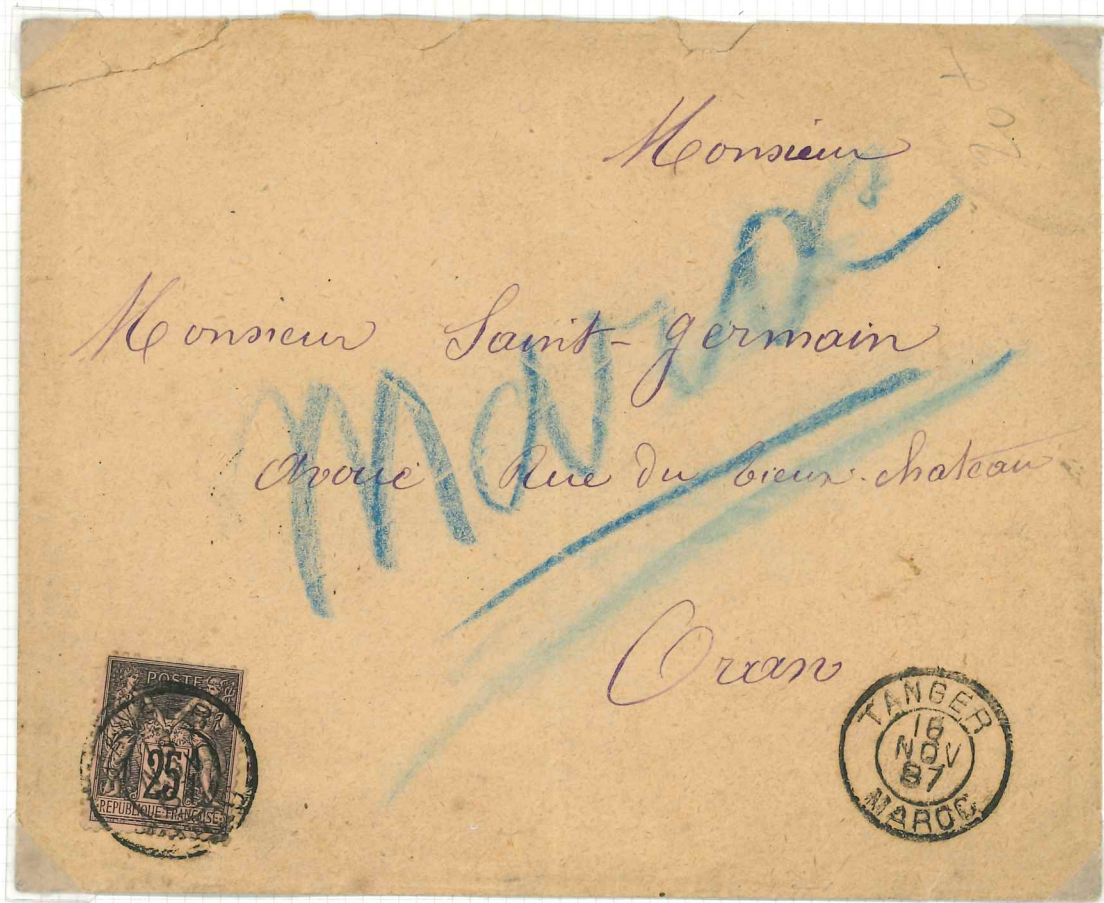 Monsieur
Maroc
Monsieur Saint-germain
Avoué Rue du vieux chateau
Oran
POSTE
25
REPUBLIQUE FRANÇAISE
TANGER
18
NOV
87
MAROC